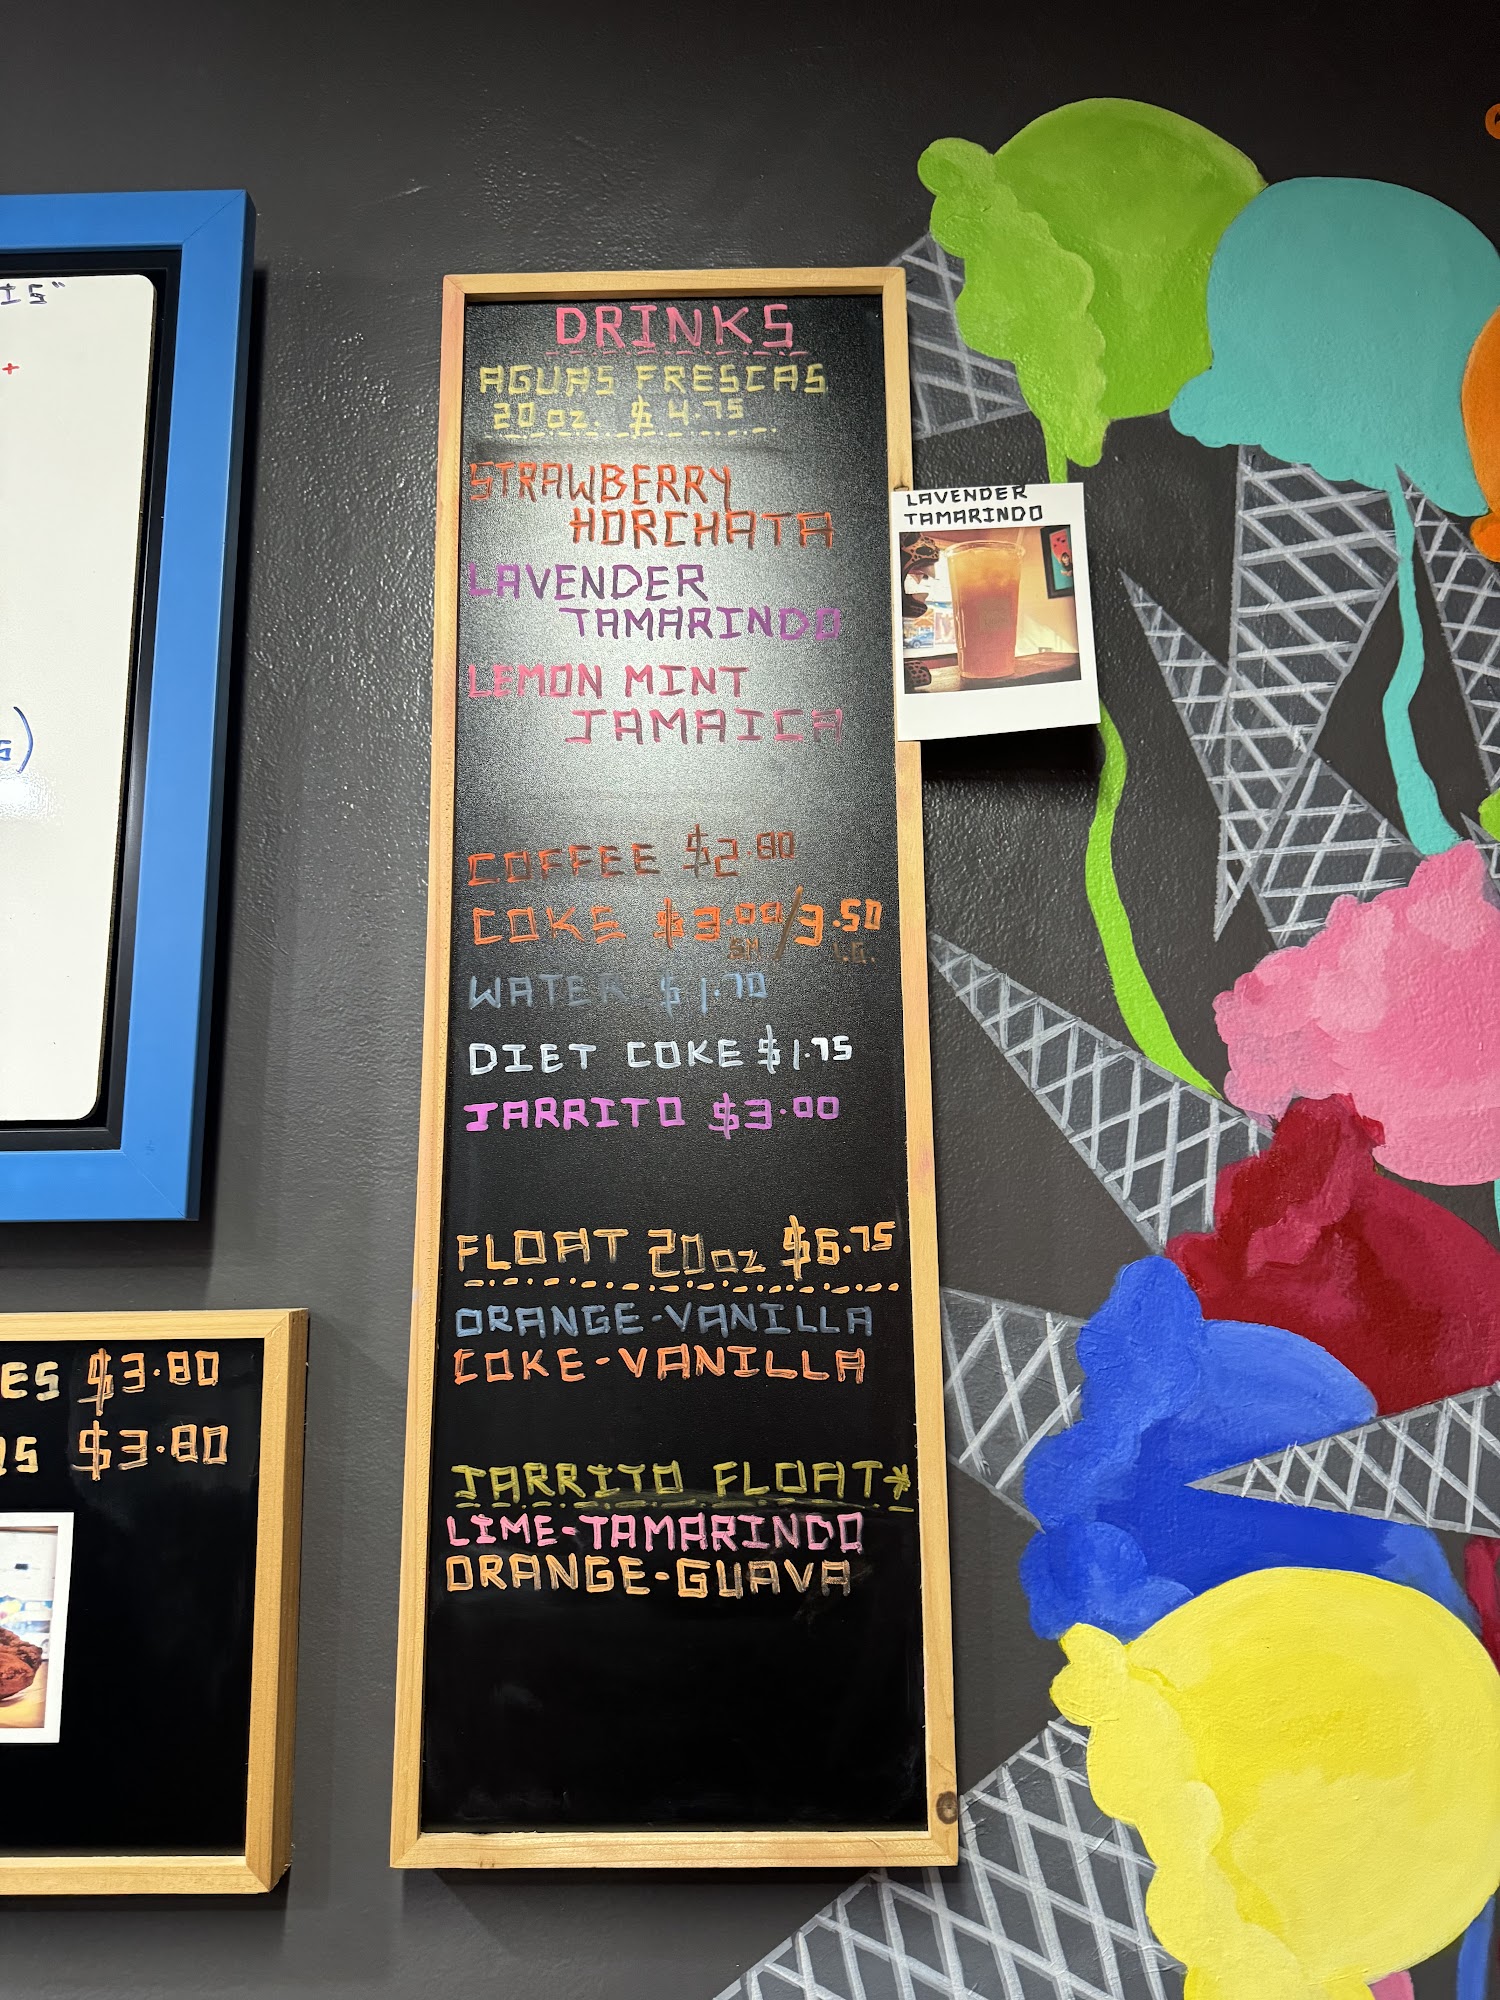 IS"
+
s)
DRINKS
AGUAS FRESCAS
20 oz. $4.75
STRAWBERRY
HORCHATA
LAVENDER
TAMARINDO
LEMON MINT
JAMAICA
COFFEE $2.80
COKE $3.00/3.50
SM LG.
WATER $1.70
DIET COKE $1.75
JARRITO $3.00
FLOAT 20oz $6.75
ORANGE-VANILLA
COKE-VANILLA
JARRITO FLOAT*
LIME-TAMARINDO
ORANGE-GUAVA
LAVENDER
TAMARINDO
ES $3.80
OS $3.80